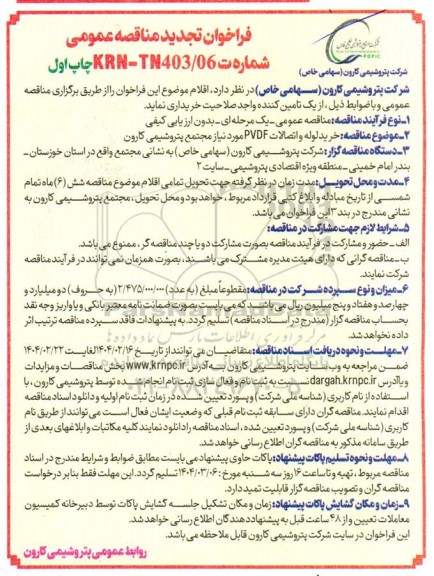 فراخوان تجدید مناقصه عمومی
شماره ت KRN-TN403/06 چاپ اول
شرکت پتروشیمی کارون (سهامی خاص)
شرکت پتروشیمی کارون (سهامی خاص) در نظر دارد، اقلام موضوع این فراخوان را از طریق برگزاری مناقصه
عمومی و با ضوابط ذیل، از یک تامین کننده واجد صلاحیت خریداری نماید.
1- نوع فرآیند مناقصه: مناقصه عمومی - یک مرحله ای - بدون ارزیابی کیفی
2- موضوع مناقصه: خرید لوله و اتصالات PVDF مورد نیاز مجتمع پتروشیمی کارون
3- دستگاه مناقصه گزار: شرکت پتروشیمی کارون (سهامی خاص) به نشانی مجتمع واقع در استان خوزستان -
بندر امام خمینی - منطقه ویژه اقتصادی پتروشیمی - سایت 2
4- مدت و محل تحویل: مدت زمان در نظر گرفته جهت تحویل تمامی اقلام موضوع مناقصه شش (6) ماه تمام
شمسی از تاریخ مبادله و ابلاغ کتبی قرارداد مربوط، خواهد بود و محل تحویل، مجتمع پتروشیمی کارون به
نشانی مندرج در بند 3 این فراخوان می باشد.
5- شرایط لازم جهت مشارکت در مناقصه:
الف- حضور و مشارکت در فرآیند مناقصه بصورت مشارکت دو یا چند مناقصه گر، ممنوع می باشد.
ب- مناقصه گرانی که دارای هیئت مدیره مشترک می باشند، بصورت همزمان نمی توانند در فرآیند مناقصه
شرکت نمایند.
6- میزان و نوع سپرده شرکت در مناقصه: مقطوعاً مبلغ (به عدد) 2/475/000/000 (به حروف) دو میلیارد و
چهارصد و هفتاد و پنج میلیون ریال می باشد که می بایست بصورت ضمانت نامه معتبر بانکی و یا واریز وجه نقد
بحساب مناقصه گزار (مندرج در اسناد مناقصه) تسلیم گردد. به پیشنهادات فاقد سپرده مناقصه ترتیب اثر
داده نخواهد شد.
7- مهلت و نحوه دریافت اسناد مناقصه: متقاضیان می توانند از تاریخ 1404/02/16 لغایت 1404/02/22
ضمن مراجعه به وب سایت پتروشیمی کارون به آدرس www.krnpc.ir بخش مناقصات و مزایدات
و یا آدرس dargah.krnpc.ir نسبت به ثبت نام و فعال سازی ثبت نام انجام شده توسط پتروشیمی کارون، با
استفاده از نام کاربری (شناسه ملی شرکت) و پسورد تعیین شده در زمان ثبت نام اولیه و دانلود اسناد مناقصه
اقدام نمایند. مناقصه گران دارای سابقه ثبت نام قبلی که وضعیت ایشان فعال است می توانند از طریق نام
کاربری (شناسه ملی شرکت) و پسورد تعیین شده، اسناد مناقصه را دانلود نمایند کلیه مکاتبات و ابلاغهای بعدی از
طریق سامانه مذکور به مناقصه گران اطلاع رسانی خواهد شد.
8- مهلت و نحوه تسلیم پاکات پیشنهاد: پاکات حاوی پیشنهاد می بایست مطابق ضوابط و شرایط مندرج در اسناد
مناقصه مربوط، تهیه و تا ساعت 16 روز سه شنبه مورخ: 1404/03/06 تسلیم گردد. این مهلت فقط بنابر درخواست
مناقصه گران و تصویب مناقصه گزار قابلیت تمدید دارد.
9- زمان و مکان گشایش پاکات پیشنهاد: زمان و مکان تشکیل جلسه گشایش پاکات توسط دبیرخانه کمیسیون
معاملات تعیین و از 48 ساعت قبل به پیشنهاد دهندگان اطلاع رسانی خواهد شد.
این فراخوان در سایت شرکت پتروشیمی کارون قابل ملاحظه می باشد.
روابط عمومی پتروشیمی کارون